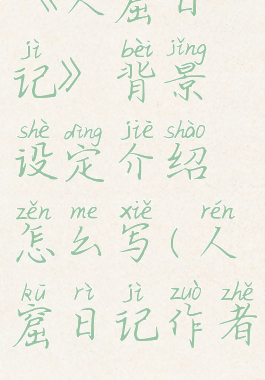 《人窟日
jì bèi jǐng
记》背景
shè dìng jiè shào
设定介绍
zěn me xiě rén
怎么写(人
kū rì jì zuò zhě
窟日记作者